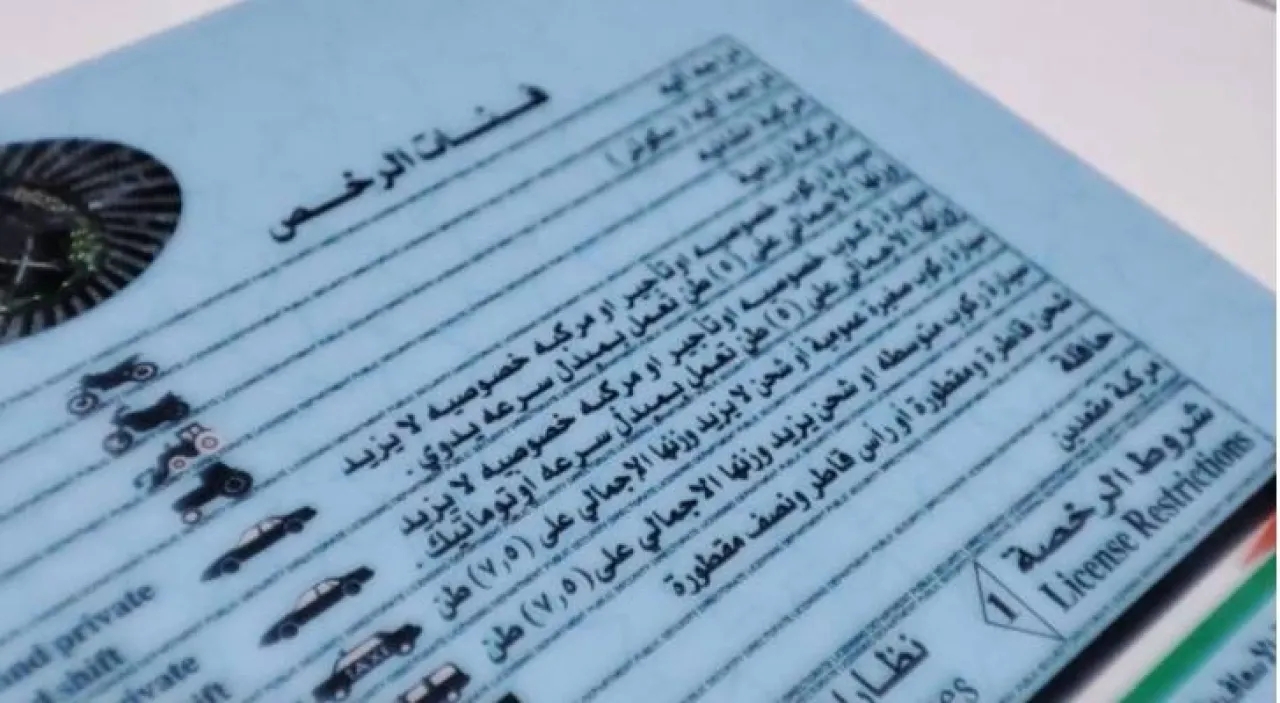 فئات الرخص
دراجه آليه
دراجه آليه ( سكوتر )
مركبة زراعية
سيارة ركوب خصوصيه اوتأجير او مركبه خصوصيه لا يزيد
وزنها الاجمالي على (٥) طن تعمل بمبدل سرعه يدوي.
سيارة ركوب خصوصيه اوتأجير او مركبه خصوصيه لا يزيد
وزنها الاجمالي على (٥) طن تعمل بمبدل سرعه اوتوماتيك.
سيارة ركوب صغيرة عمومية او شحن لا يزيد وزنها الاجمالي على (٧,٥) طن
سيارة ركوب متوسطه او شحن يزيد وزنها الاجمالي على (٧,٥) طن
شحن قاطرة ومقطورة أو رأس قاطر ونصف مقطورة
حافلة
مركبة مقعدين
and private
shift
private
TAXI
شروط الرخصة
License Restrictions
1